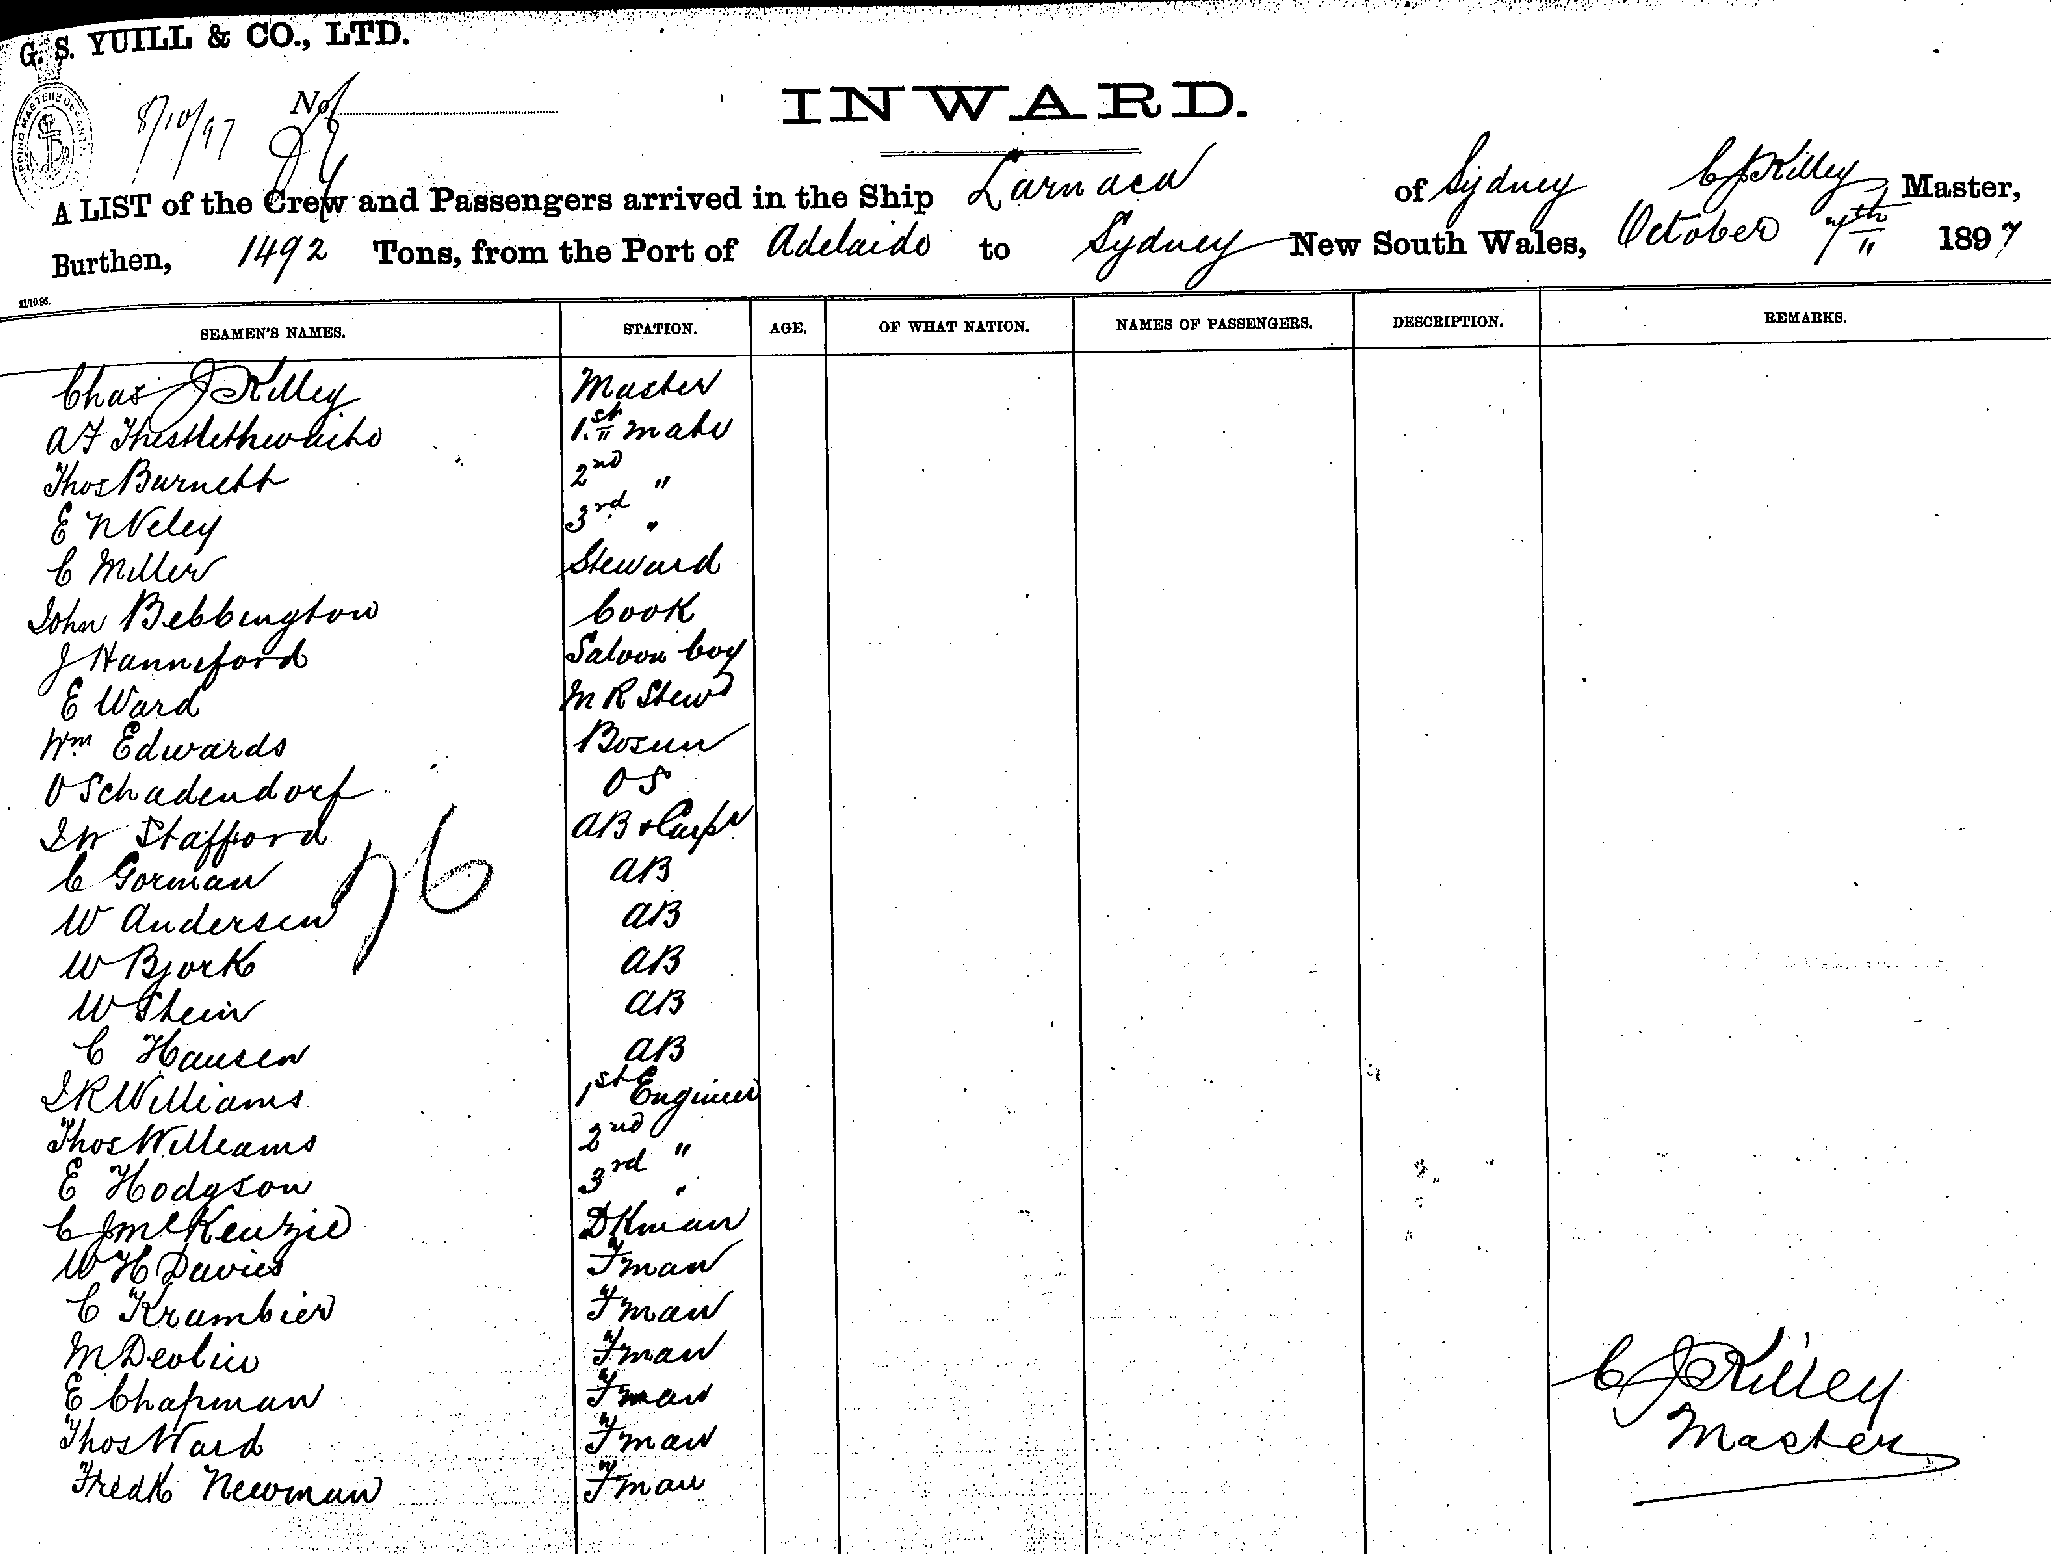 G. S. YUILL & CO., LTD.
8/10/97 No.
INWARD.
A LIST of the Crew and Passengers arrived in the Ship Larnaca of Sydney C J Killey, Master,
Burthen, 1492 Tons, from the Port of Adelaide to Sydney New South Wales, October 7th 1897
SEAMEN'S NAMES. STATION. AGE. OF WHAT NATION. NAMES OF PASSENGERS. DESCRIPTION. REMARKS.
Chas J Killey Master
A F Thistlethwaite 1st mate
Thos Burnett 2nd "
E N Veley 3rd "
C Miller Steward
John Bebbington Cook
J Hanneford Saloon boy
E Ward M R Stewd
Wm Edwards Bosun
O Schadendorf O S
J W Stafford AB & Carpr
C Gorman AB
W Andersen AB
76
W Bjork AB
W Stein AB
C Hansen AB
J R Williams 1st Engineer
Thos Williams 2nd "
E Hodgson 3rd "
C J McKenzie DKman
W H Davies Fman
C Krambier Fman
M Devlin Fman
E Chapman Fman
Thos Ward Fman
Fredk Newman Fman
C J Killey
Master